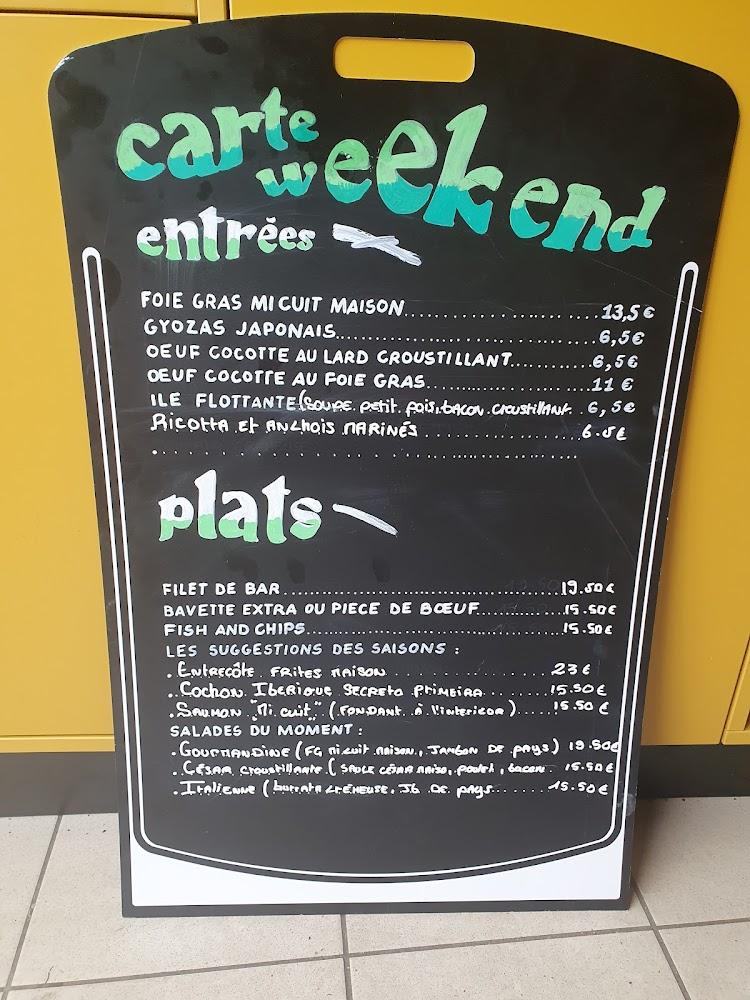 carte
weekend
entrées
FOIE GRAS MI CUIT MAISON.......................13,5€
GYOZAS JAPONAIS.......................6,5€
OEUF COCOTTE AU LARD CROUSTILLANT............6,5€
OEUF COCOTTE AU FOIE GRAS.......................11 €
ILE FLOTTANTE (SOUPE. PETIT. POIS, BACON. CROUSTILLANT. .6,5€
RICOTTA ET ANCHOIS MARINÉS.......................6.5€
plats
FILET DE BAR.......................19.50€
BAVETTE EXTRA OU PIECE DE BŒUF............15.50€
FISH AND CHIPS.......................15.50€
LES SUGGESTIONS DES SAISONS :
. ENTRECÔTE FRITES MAISON.......................23€
. COCHON IBERIQUE SECRETO PRIMEIRA.........15.50€
. SAUMON "MI CUIT" (FONDANT à l'interieur).....15.50€
SALADES DU MOMENT :
. GOURMANDINE (FG MI CUIT MAISON., JAMBON DE PAYS) 19.50€
. CÉSAR CROUSTILLANTE (SAUCE CÉSAR MAISO, POULET, BACON. 15.50€
. ITALIENNE (BURRATA CRÉMEUSE, JB DE PAYS.......15.50€